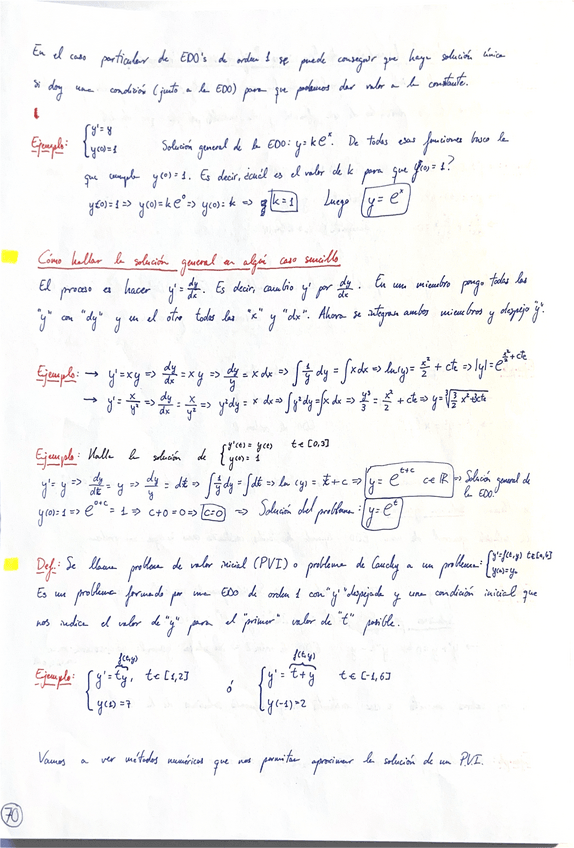 En el caso particular de EDO's de orden 1 se puede conseguir que haya solución única
si doy una condición (junto a la EDO) para que podamos dar valor a la constante.
Ejemplo: { y' = y
y(0) = 1 Solución general de la EDO: y = k e^x. De todas esas funciones busco la
que cumpla y(0) = 1. Es decir, ¿cuál es el valor de k para que y(0) = 1?
y(0) = 1 => y(0) = k e^0 => y(0) = k => k = 1 Luego y = e^x
Cómo hallar la solución general en algún caso sencillo
El proceso es hacer y' = dy/dx. Es decir, cambio y' por dy/dx. En un miembro pongo todas las
"y" con "dy" y en el otro todas las "x" y "dx". Ahora se integran ambos miembros y despejo "y".
Ejemplo: → y' = xy => dy/dx = xy => dy/y = x dx => ∫ 1/y dy = ∫ x dx => ln(y) = x²/2 + cte => |y| = e^(x²/2 + cte)
→ y' = x/y² => dy/dx = x/y² => y² dy = x dx => ∫ y² dy = ∫ x dx => y³/3 = x²/2 + cte => y = ∛(3/2 x² + 3cte)
Ejemplo: Halla la solución de { y'(t) = y(t) t ∈ [0,3]
y(0) = 1
y' = y => dy/dt = y => dy/y = dt => ∫ 1/y dy = ∫ dt => ln(y) = t + c => y = e^(t+c) c ∈ ℝ => Solución general de
la EDO.
y(0) = 1 => e^(0+c) = 1 => c + 0 = 0 => c = 0 => Solución del problema: y = e^t
Def.: Se llama problema de valor inicial (PVI) o problema de Cauchy a un problema: { y' = f(t,y) t ∈ [a,b]
y(a) = yₐ
Es un problema formado por una EDO de orden 1 con "y'" despejada y una condición inicial que
nos indica el valor de "y" para el "primer" valor de "t" posible.
f(t,y) f(t,y)
Ejemplo: { y' = ty, t ∈ [1,2] ó { y' = t + y t ∈ [-1,6]
y(1) = 7 y(-1) = 2
Vamos a ver métodos numéricos que nos permitan aproximar la solución de un PVI.
70